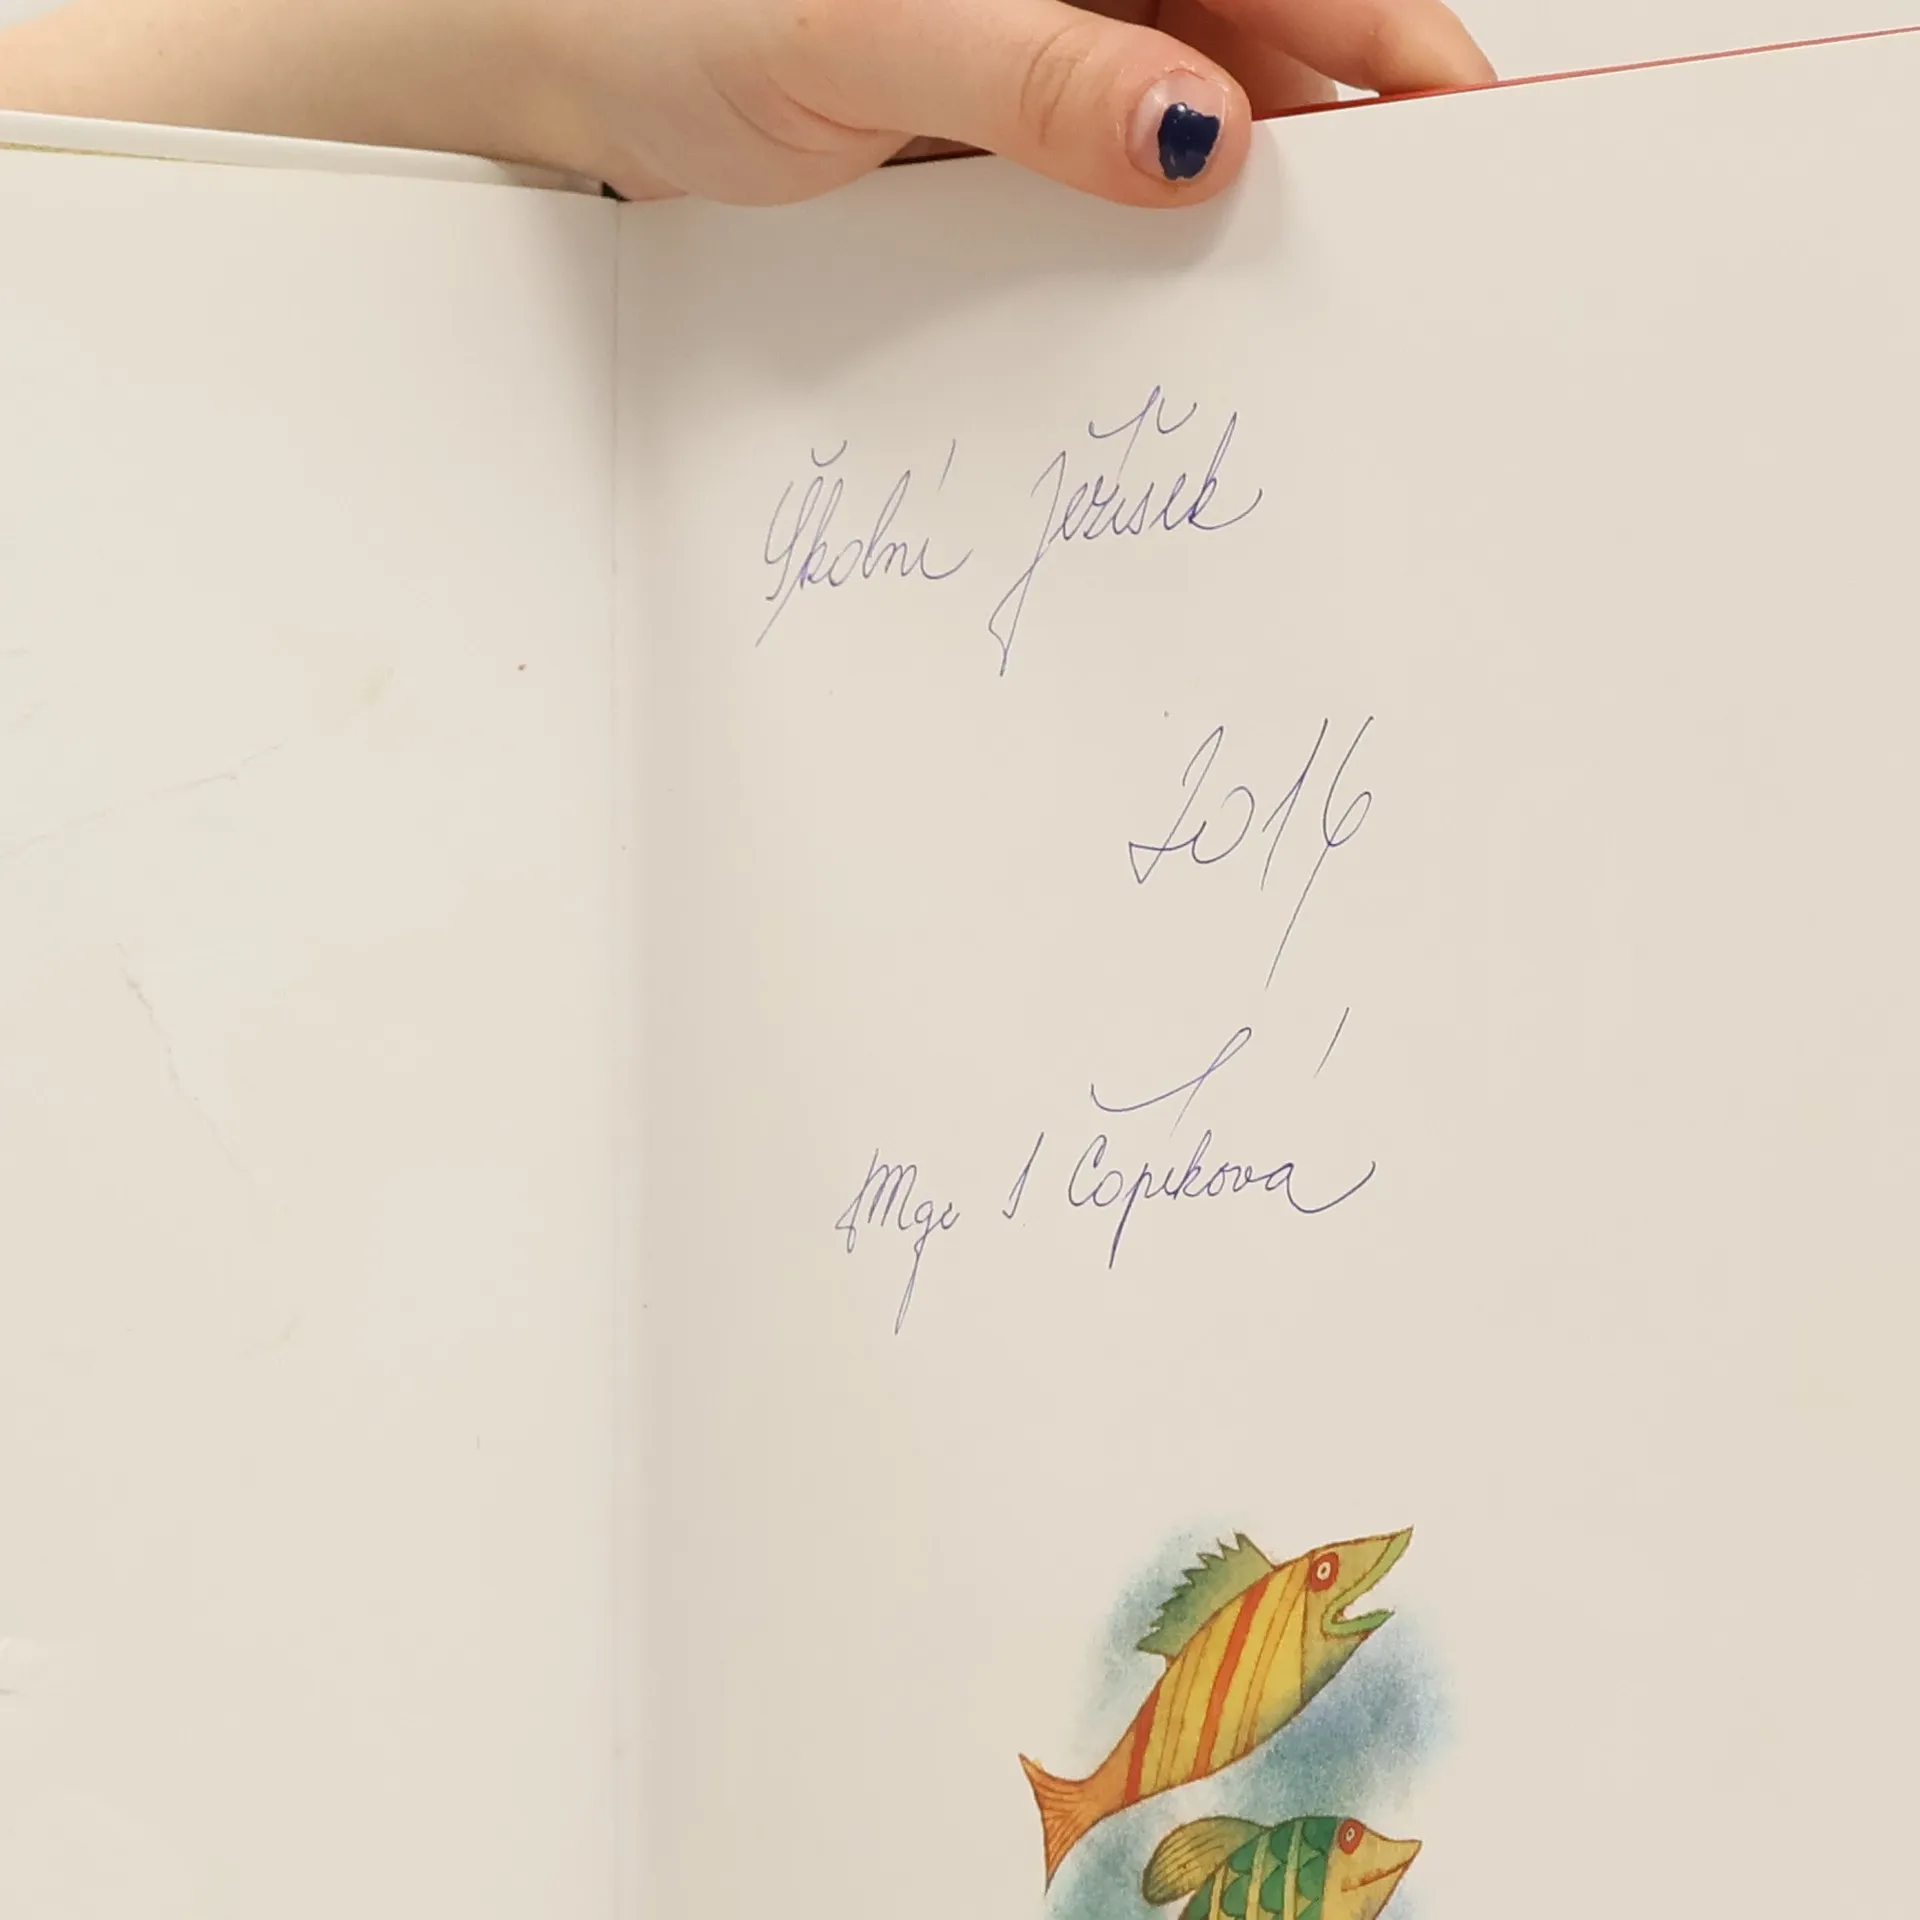 Školní Ježíšek
2016
Mgr I Čopíková